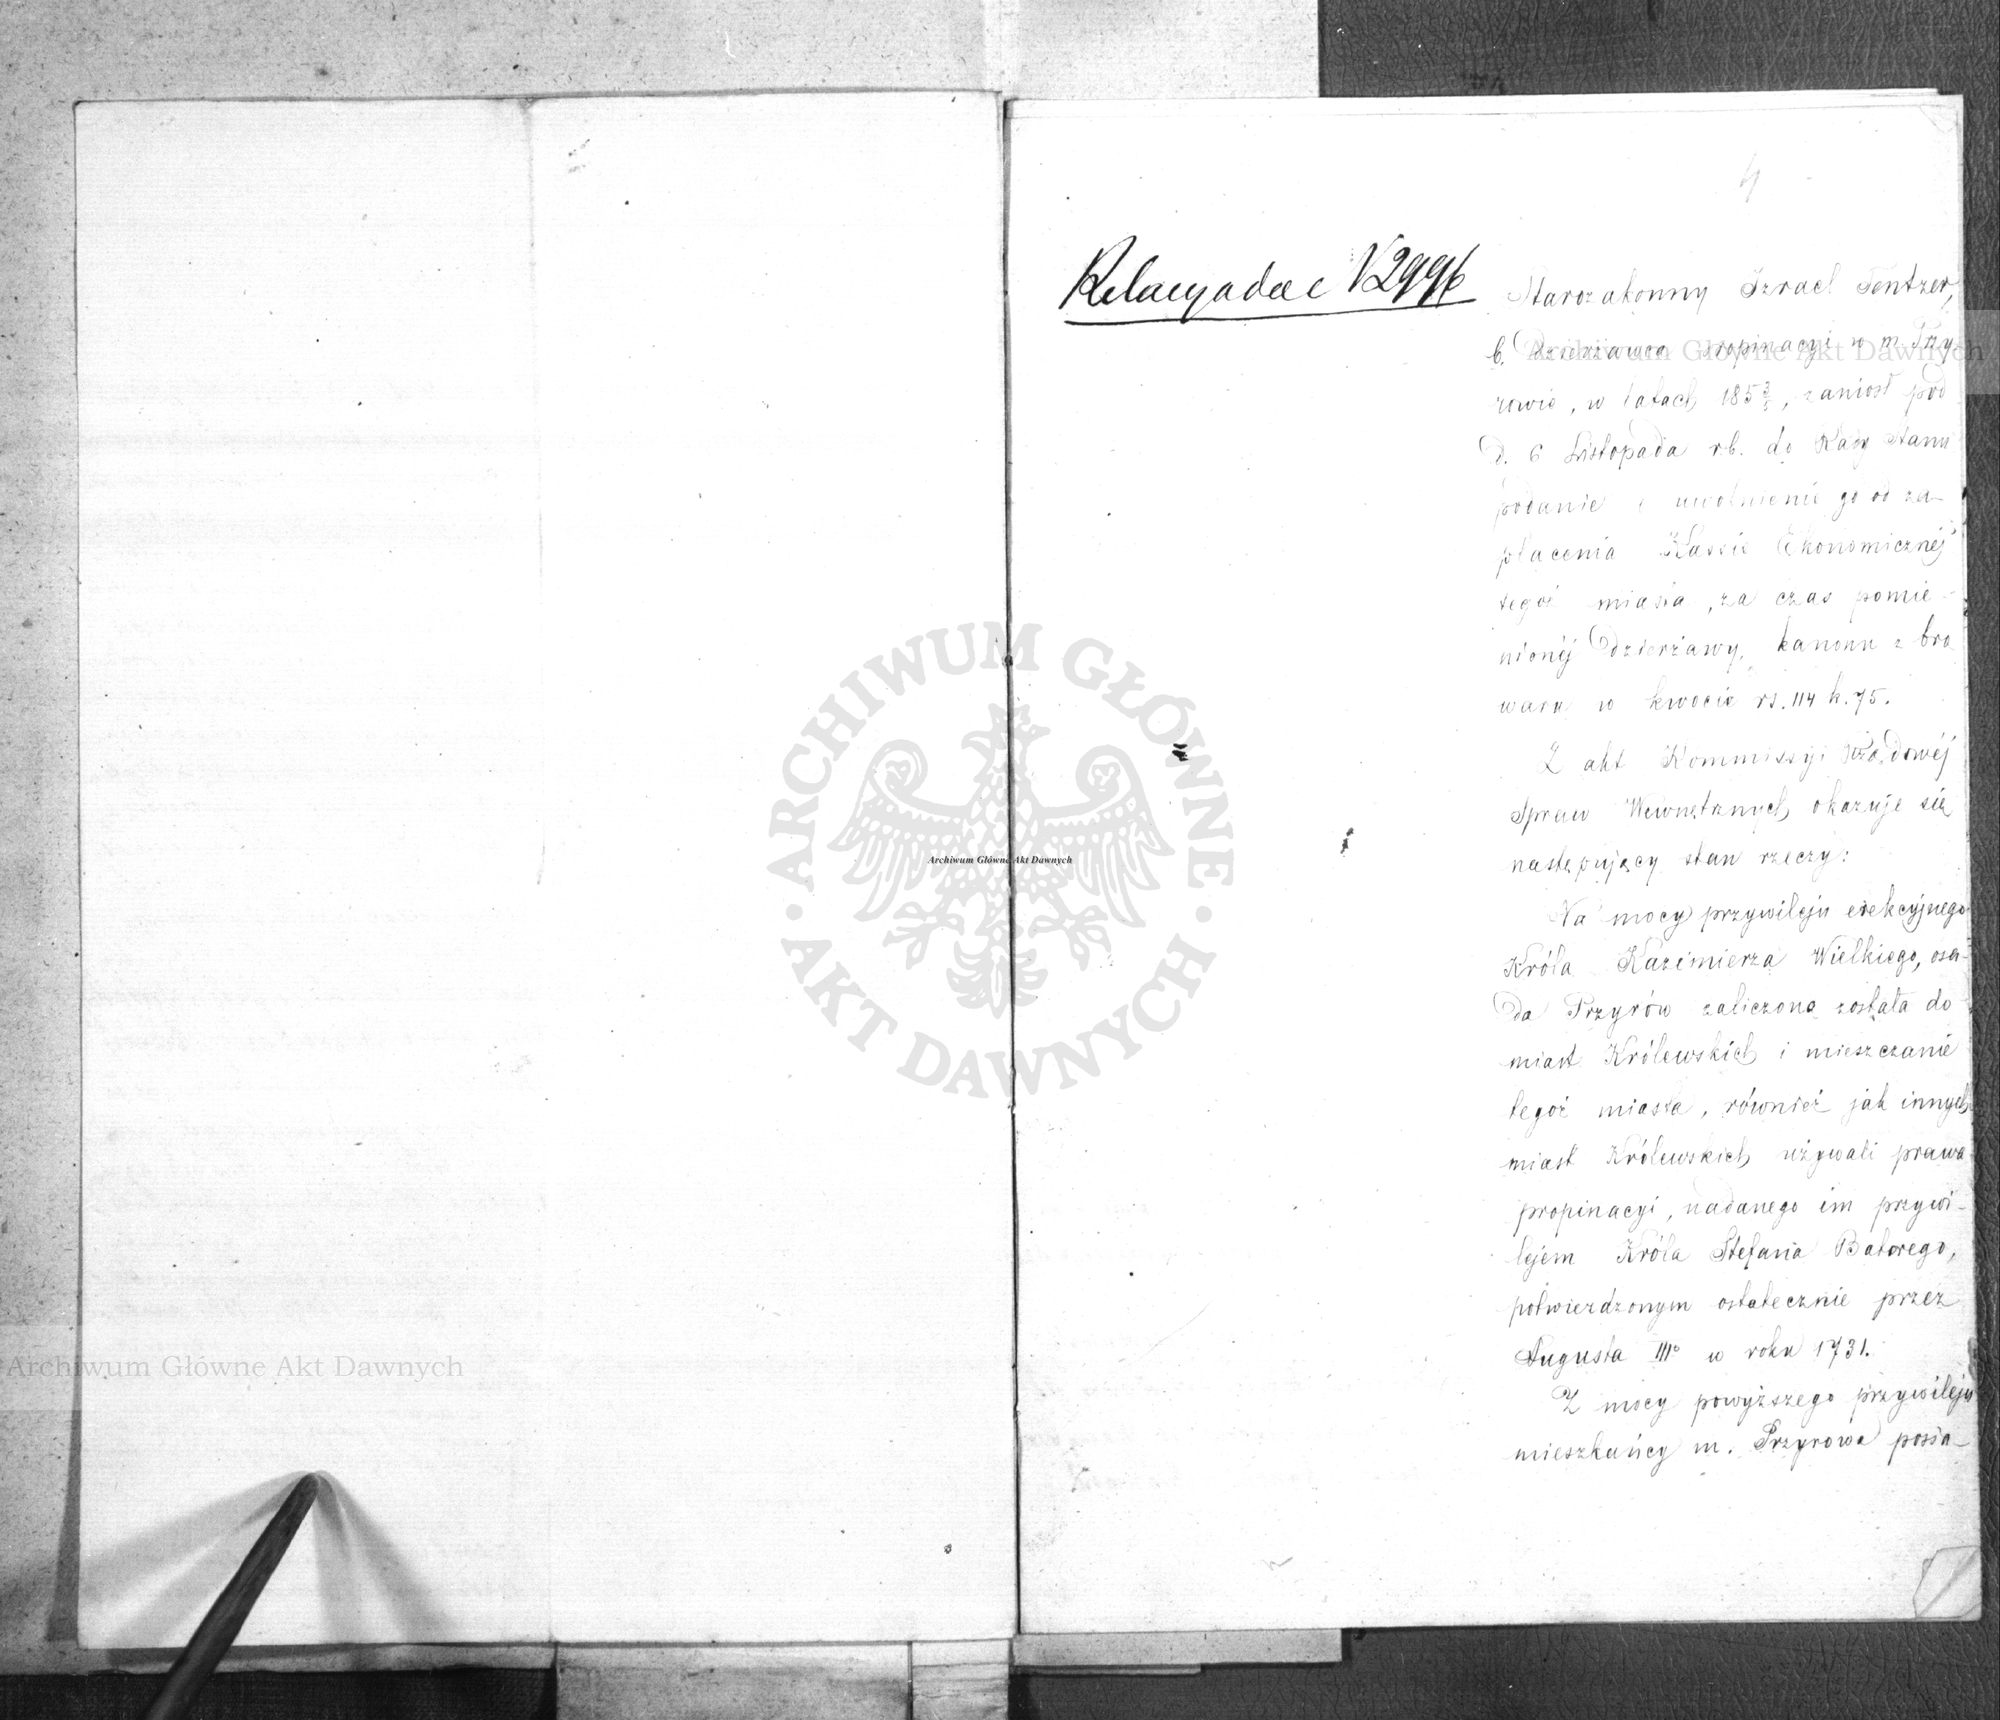 4
Relacya dæc N 2996
Starozakonny Izrael Tentzer,
b. Dzierżawca propinacyi w m. Przy-
rowie, w latach 185 3/5, zaniósł pod
d. 6 Listopada rb. do Rady Stanu
podanie o uwolnienie go od za-
płacenia Kassie Ekonomicznéj
tegoż miasta, za czas pomie-
nionéj Dzierżawy, kanonu z bro
waru w kwocie rs. 114 k. 75.
Z akt Kommissyi Rządowéj
Spraw Wewnętrznych okazuje się
następujący stan rzeczy:
Na mocy przywileju erekcyjnego
Króla Kazimierza Wielkiego, osa-
da Przyrów zaliczona została do
miast Królewskich i mieszczanie
tegoż miasta, również jak innych
miast Królewskich używali prawa
propinacyi, nadanego im przywi-
lejem Króla Stefana Batorego,
potwierdzonym ostatecznie przez
Augusta IIIo w roku 1731.
Z mocy powyższego przywileju
mieszkańcy m. Przyrowa posia-
ARCHIWUM GŁÓWNE
AKT DAWNYCH
Archiwum Główne Akt Dawnych
Archiwum Główne Akt Dawnych
Archiwum Główne Akt Dawnych